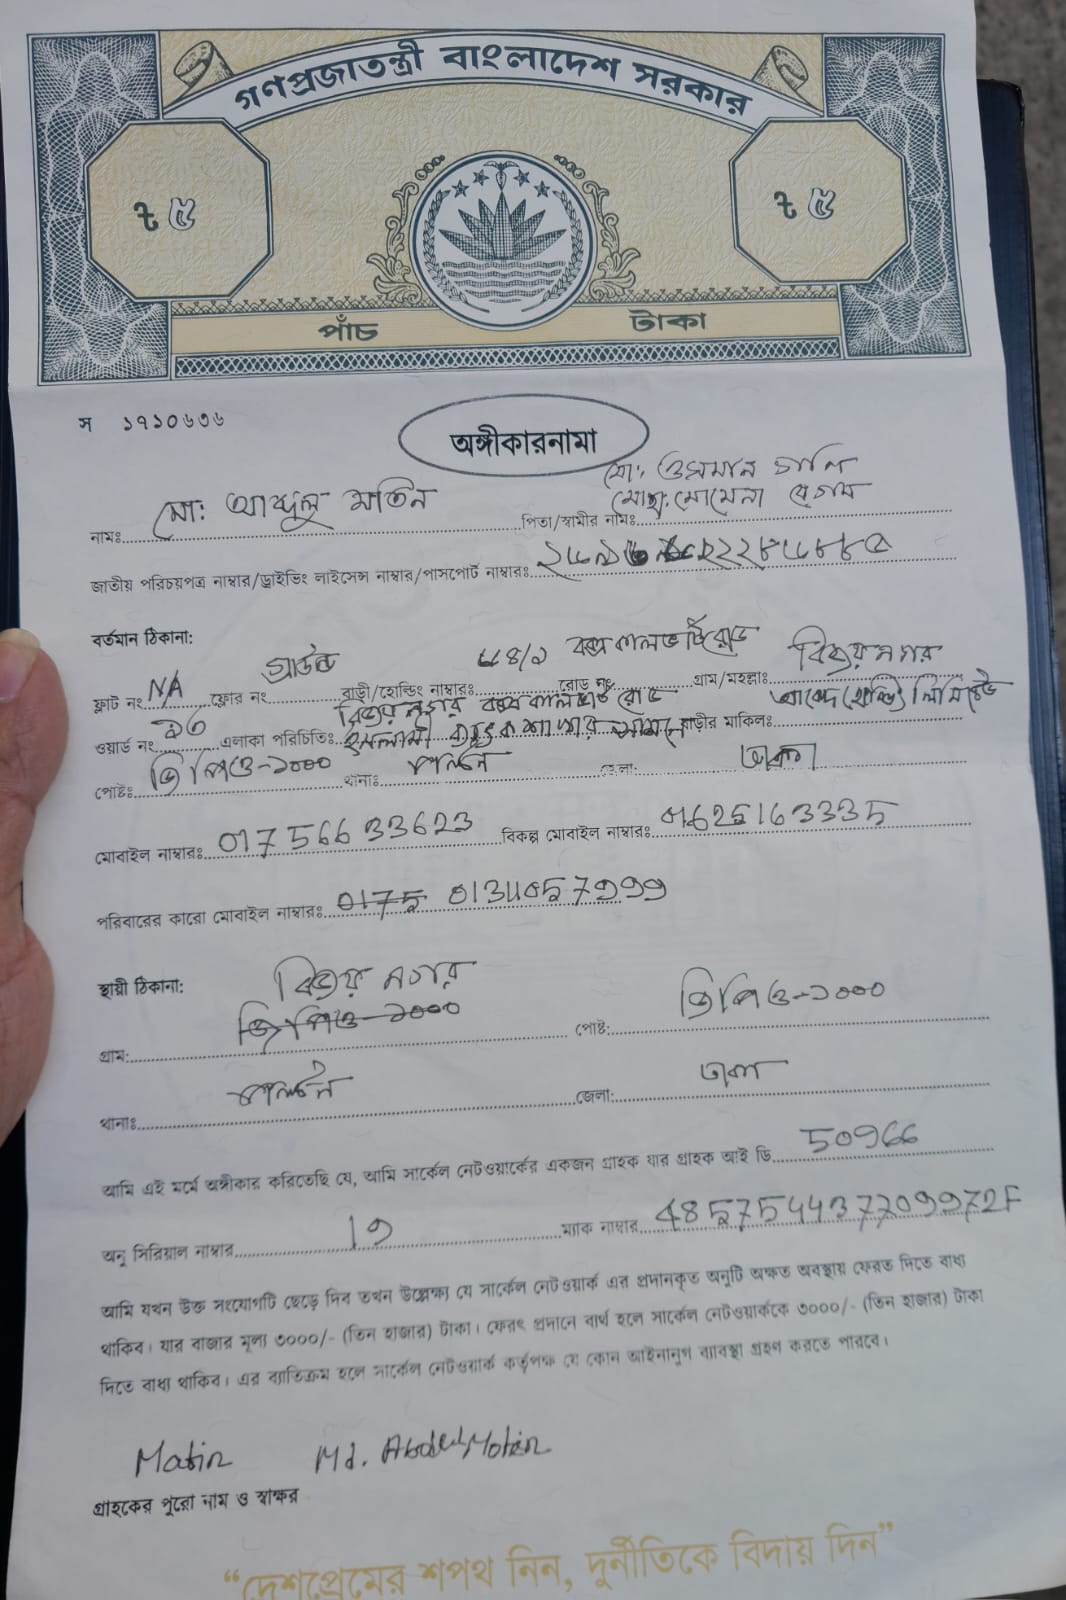 গণপ্রজাতন্ত্রী বাংলাদেশ সরকার
৳ ৫
৳ ৫
পাঁচ টাকা
স ১৭১০৬৩৬
অঙ্গীকারনামা
মো: ওসমান গনি
মোছা: মোমেনা বেগম
নামঃ মো: আব্দুল মতিন পিতা/স্বামীর নামঃ
জাতীয় পরিচয়পত্র নাম্বার/ড্রাইভিং লাইসেন্স নাম্বার/পাসপোর্ট নাম্বারঃ
বর্তমান ঠিকানা:
ফ্লাট নং NA ফ্লোর নং গ্রাউন্ড বাড়ী/হোল্ডিং নাম্বারঃ রোড নং বক্স কালভার্ট রোড গ্রাম/মহল্লাঃ বিজয়নগর
বিজয়নগর বক্স কালভার্ট রোড
ওয়ার্ড নং এলাকা পরিচিতিঃ ইসলামী ব্যাংক শাখার সামনে বাড়ীর মালিকঃ হোল্ডিং লিমিটেড
পোষ্টঃ জিপিও-১০০০ থানাঃ পল্টন জেলা: ঢাকা
মোবাইল নাম্বারঃ 01756633623 বিকল্প মোবাইল নাম্বারঃ 01625163335
পরিবারের কারো মোবাইল নাম্বারঃ
স্থায়ী ঠিকানা:
বিজয় নগর
গ্রাম: জিপিও-১০০০ পোষ্ট: জিপিও-১০০০
থানাঃ পল্টন জেলা: ঢাকা
আমি এই মর্মে অঙ্গীকার করিতেছি যে, আমি সার্কেল নেটওয়ার্কের একজন গ্রাহক যার গ্রাহক আই ডি 50966
অনু সিরিয়াল নাম্বার 19 ম্যাক নাম্বার
আমি যখন উক্ত সংযোগটি ছেড়ে দিব তখন উল্লেক্ষ্য যে সার্কেল নেটওয়ার্ক এর প্রদানকৃত অনুটি অক্ষত অবস্থায় ফেরত দিতে বাধ্য
থাকিব। যার বাজার মূল্য ৩০০০/- (তিন হাজার) টাকা। ফেরৎ প্রদানে ব্যর্থ হলে সার্কেল নেটওয়ার্ককে ৩০০০/- (তিন হাজার) টাকা
দিতে বাধ্য থাকিব। এর ব্যাতিক্রম হলে সার্কেল নেটওয়ার্ক কর্তৃপক্ষ যে কোন আইনানুগ ব্যাবস্থা গ্রহণ করতে পারবে।
Matin Md. Abdul Motin
গ্রাহকের পুরো নাম ও স্বাক্ষর
“দেশপ্রেমের শপথ নিন, দুর্নীতিকে বিদায় দিন”